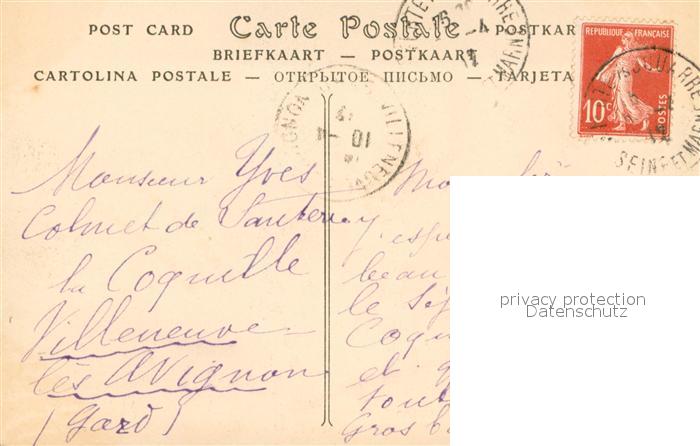 POST CARD Carte Postale POSTKAR
BRIEFKAART — POSTKAART
CARTOLINA POSTALE — ОТКРЫТОЕ ПИСЬМО — TARJETA
REPUBLIQUE FRANÇAISE
10c
POSTES
SEINE ET MARNE
10 - 4
Monsieur Yves
Colmet de Santerre
la Coquille
Villeneuve-
lès Avignon
(Gard)
Mon
J'esp
beau
le
Coqu
et
tout
Gros b
privacy protection
Datenschutz